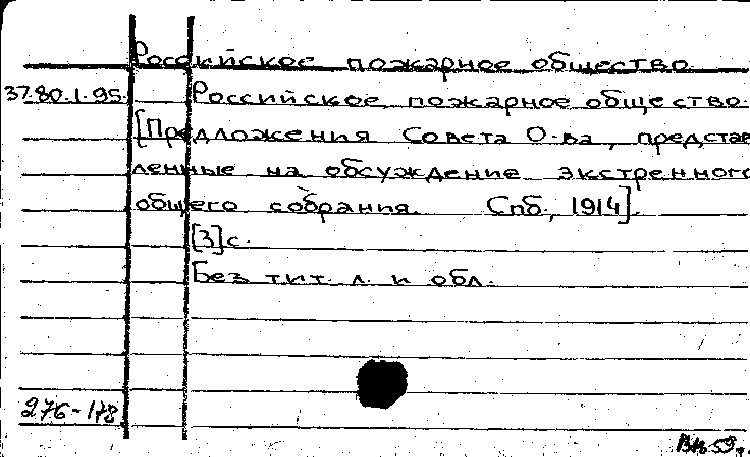 Российское пожарное общество.
37.80.1.95. Российское пожарное общество.
[Предложения Совета О-ва, представ
ленные на обсуждение экстренного
общего собрания. Спб., 1914].
[3]с.
Без тит. л. и обл.
276-178